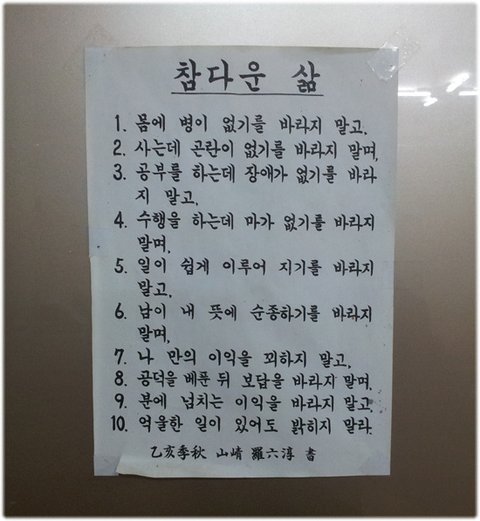 참다운 삶
1. 몸에 병이 없기를 바라지 말고,
2. 사는데 곤란이 없기를 바라지 말며,
3. 공부를 하는데 장애가 없기를 바라
지 말고,
4. 수행을 하는데 마가 없기를 바라지
말며,
5. 일이 쉽게 이루어 지기를 바라지
말고,
6. 남이 내 뜻에 순종하기를 바라지
말며,
7. 나 만의 이익을 꾀하지 말고,
8. 공덕을 베푼 뒤 보답을 바라지 말며,
9. 분에 넘치는 이익을 바라지 말고
10. 억울한 일이 있어도 밝히지 말라.
乙亥季秋 山崝 羅六淳 書